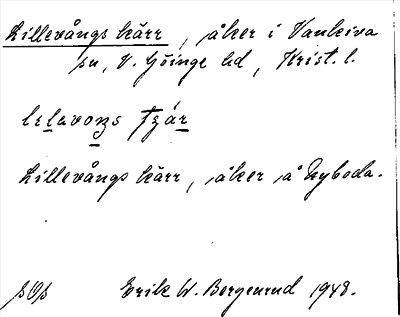 Lillevångs kärr, åker i Vankiva
sn, V. Göinge hd, Krist. l.
Lillevångs kärr, åker å Nyboda.
Erik W. Bergenrud 1948.